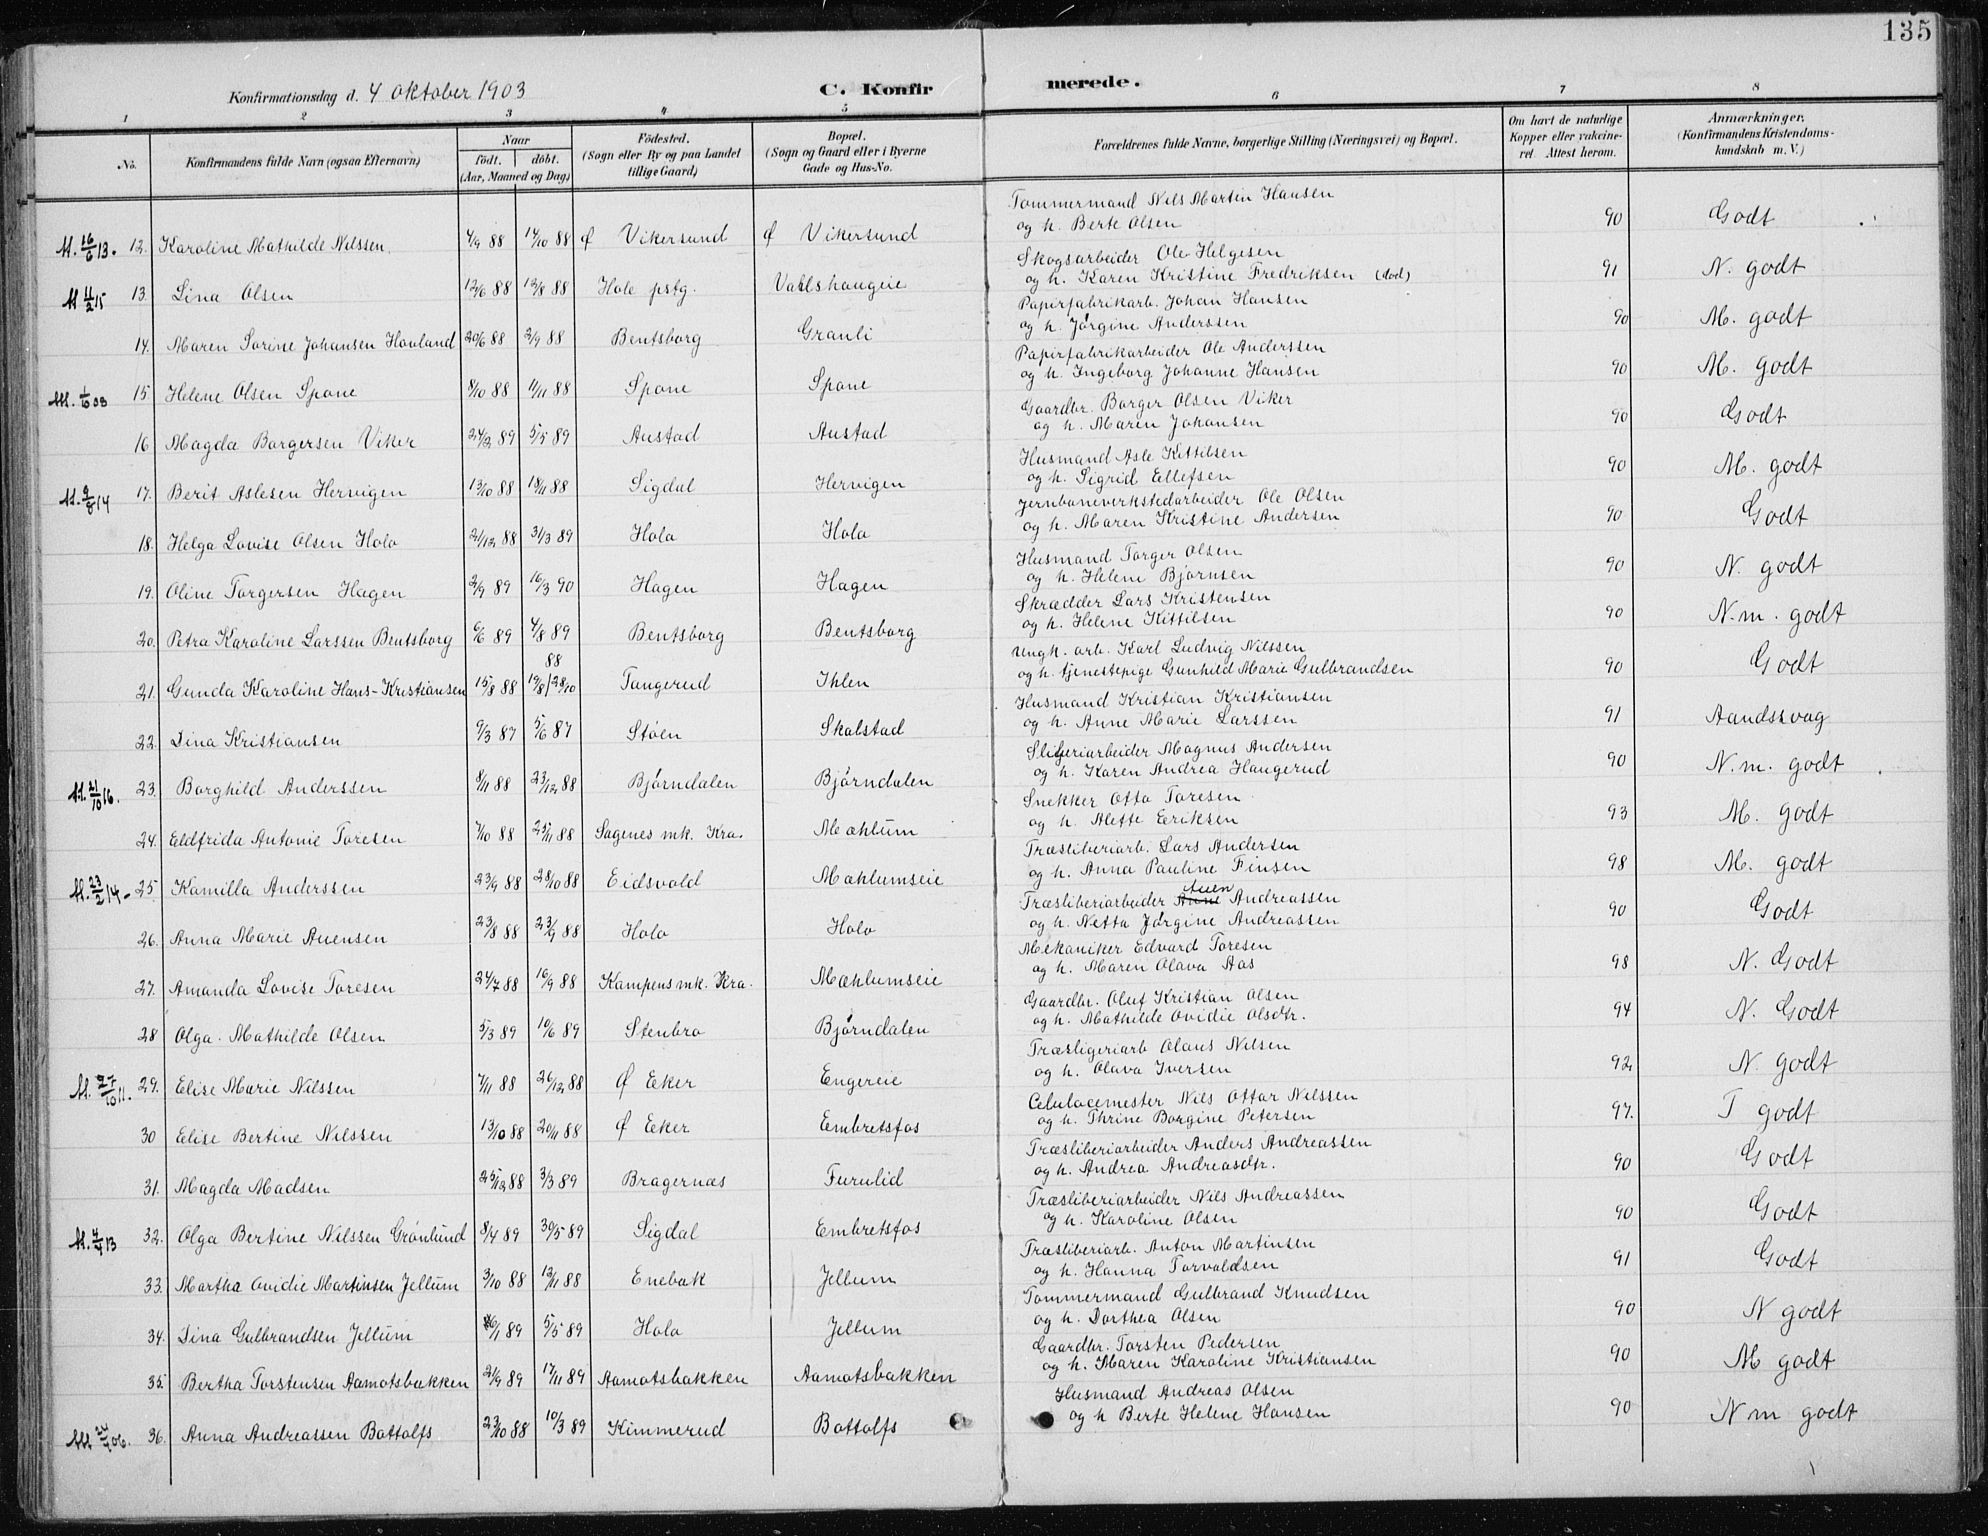 135
Konfirmationsdag d. 4 oktober 1903 C. Konfirmerede.
1 2 3 4 5 6 7 8
No. Konfirmandens fulde Navn (ogsaa Efternavn) Naar født. døbt. (Aar, Maaned og Dag) Fødested. (Sogn eller By og paa Landet tillige Gaard) Bopæl. (Sogn og Gaard eller i Byerne Gade og Hus-No. Forældrenes fulde Navne, borgerlige Stilling (Næringsvei) og Bopæl. Om havt de naturlige Kopper eller vakcineret. Attest herom. Anmærkninger. (Konfirmandens Kristendomskundskab m. V.)
M. 16/6 13. 12. Karoline Mathilde Nilssen 4/9 88 14/10 88 Ø Vikersund Ø Vikersund Tømmermand Nils Martin Hansen og h. Berte Olsen 90 Godt
M 11/2 15 13. Lina Olsen 12/6 88 12/8 88 Hole pstg. Vatlshaugeie Skogsarbeider Ole Helgesen og h. Karen Kristine Fredriksen (død) 91 N. godt
14. Maren Sorine Johansen Hovland 20/6 88 2/9 88 Bentsborg Granli Papirfabrikarb. Johan Hansen og h. Jørgine Anderssen 90 M. godt
M. 1/6 03 15 Helene Olsen Spone 8/10 88 11/11 88 Spone Spone Papirfabrikarbeider Ole Anderssen og h. Ingeborg Johanne Hansen 90 M. godt
16 Magda Borgersen Viker 24/2 89 5/5 89 Austad Austad Gaardbr. Borger Olsen Viker og h. Maren Johansen 90 Godt
M. 9/8 14 17. Berit Aslesen Hervigen 13/10 88 18/11 88 Sigdal Hervigen Husmand Asle Kittilsen og h. Sigrid Ellefsen 90 M. godt
18. Helga Lovise Olsen Holo 21/12 88 3/3 89 Holo Holo Jernbaneverkstedarbeider Ole Olsen og h. Maren Kristine Andersen 90 Godt
19. Oline Torgersen Hagen 2/9 89 16/3 90 Hagen Hagen Husmand Torger Olsen og h. Helene Bjørnsen 90 N. godt
20. Petra Karoline Larssen Bentsborg 9/6 89 4/8 89 Bentsborg Bentsborg Skrædder Lars Kristensen og h. Helene Kittilsen 90 N. m. godt
21. Gunda Karoline Hans-Kristiansen 15/8 88 19/8 88 28/10 Tangerud Ihlen Ungk. arb. Karl Ludvig Nilssen og h. tjenestepige Gunhild Marie Gulbrandsen 90 Godt
22. Dina Kristiansen 9/3 87 5/6 87 Støen Skalstad Husmand Kristian Kristiansen og h. Anne Marie Larssen 91 Aandssvag
M. 21/10 16. 23. Borghild Anderssen 8/11 88 23/12 88 Bjørndalen Bjørndalen Sliberiarbeider Magnus Andersen og h. Karen Andrea Haugerud 90 N. m. godt
24. Eldfrida Antonie Toresen 7/10 88 25/11 88 Sagenes mk. Kra. Mæhlum Snekker Otto Toresen og h. Alette Eriksen 93 M. godt
M. 23/2 14 25. Kamilla Anderssen 23/9 88 28/10 88 Eidsvold Mæhlumseie Træsliberiarb. Lars Andersen og h. Anna Pauline Finsen 98 M. godt
26. Anna Marie Auensen 23/8 88 23/9 88 Holo Holo Træsliberiarbeider Auen Andreassen og h. Netta Jørgine Andreassen 90 Godt
27. Amanda Lovise Toresen 24/7 88 16/9 88 Kampens mk. Kra. Mæhlumseie Mekaniker Edvard Toresen og h. Maren Olava Aas 98 N. Godt
28 Olga Mathilde Olsen 5/3 89 10/6 89 Stenbro Bjørndalen Gaardbr. Oluf Kristian Olsen og h. Mathilde Ovidie Olsdtr. 94 N. Godt
M. 27/10 11. 29. Elise Marie Nilssen 7/11 88 26/12 88 Ø Eker Engereie Træsligeriarb Olaus Nilsen og h. Olava Iversen 92 N. godt
30 Elise Bertine Nilssen 13/10 88 20/11 88 Ø Eker Embretsfos Celulocemester Nils Ottar Nilssen og h. Thrine Borgine Petersen 97. T godt
31. Magda Madsen 25/12 88 3/3 89 Bragernæs Furulid Træsliberiarbeider Anders Andreassen og h. Andrea Andreasdtr. 90 Godt
M. 4/4 13 32. Olga Bertine Nilssen Grønlund 8/4 89 30/5 89 Sigdal Embretsfos Træsliberiarbeider Nils Andreassen og h. Karoline Olsen 90 Godt
33. Martha Ovidie Martinsen Jellum 3/10 88 12/11 88 Enebak Jellum Træsliberiarb. Anton Martinsen og h. Hanna Torvaldsen 91 Godt
34. Dina Gulbrandsen Jellum /1 89 5/5 89 Holo Jellum Tømmermand Gulbrand Knudsen og h. Dorthea Olsen 90 N godt
35. Bertha Torstensen Aamotsbakken 21/9 89 17/11 89 Aamotsbakken Aamotsbakken Gaardbr. Torsten Pedersen og h. Maren Karoline Kristiansen 90 M godt
06. 36. Anna Andreassen Bottolfs 23/10 88 10/3 89 Kimmerud Bottolfs Husmand Andreas Olsen og h Berte Helene Hansen 90 N m godt